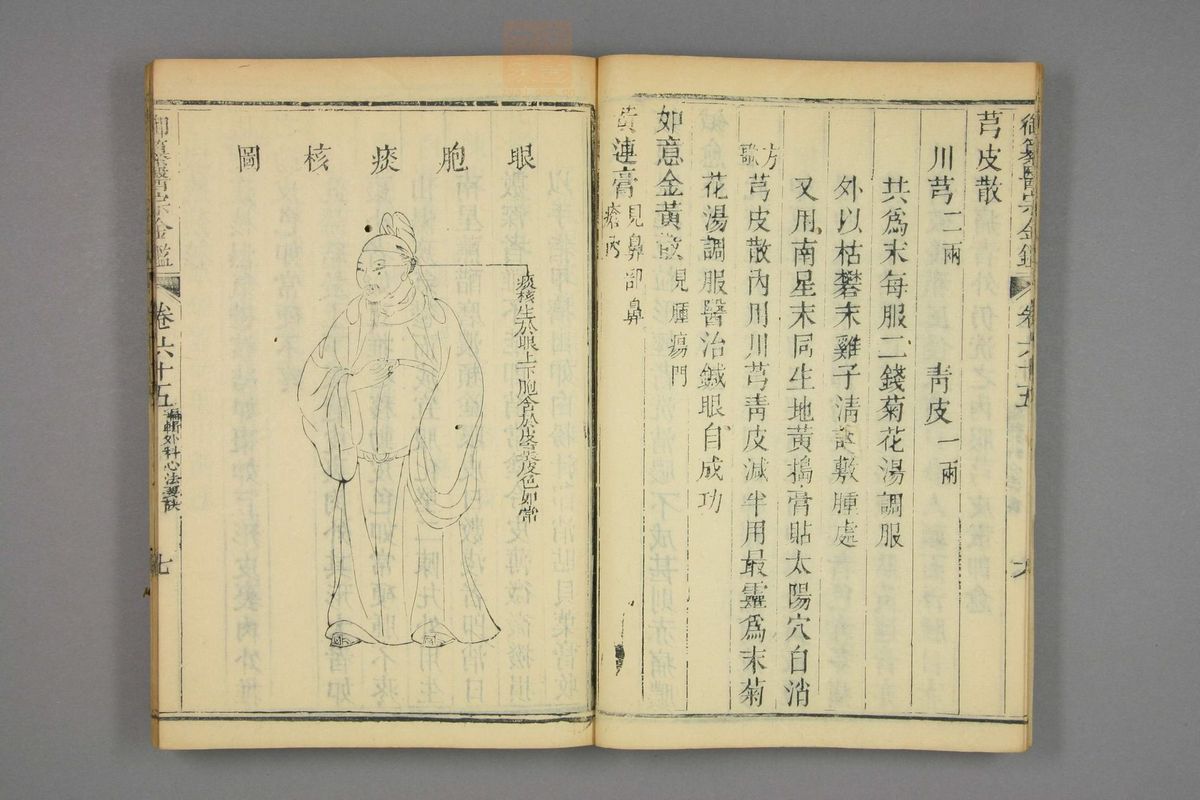 御纂醫宗金鑑
卷六十五
芎皮散
川芎二兩 青皮一兩
共為末每服二錢菊花湯調服
外以枯礬末雞子清調敷腫處
又用南星末同生地黃搗膏貼太陽穴自消
方歌
芎皮散內用川芎青皮減半用最靈為末菊
花湯調服醫治鍼眼自成功
如意金黃散見腫瘍門
黃連膏見鼻部鼻
瘡
眼胞痰核圖
痰核生於眼上下胞含於皮裏皮色如常
御纂醫宗金鑑
卷六十五
編輯外科心法要訣
七